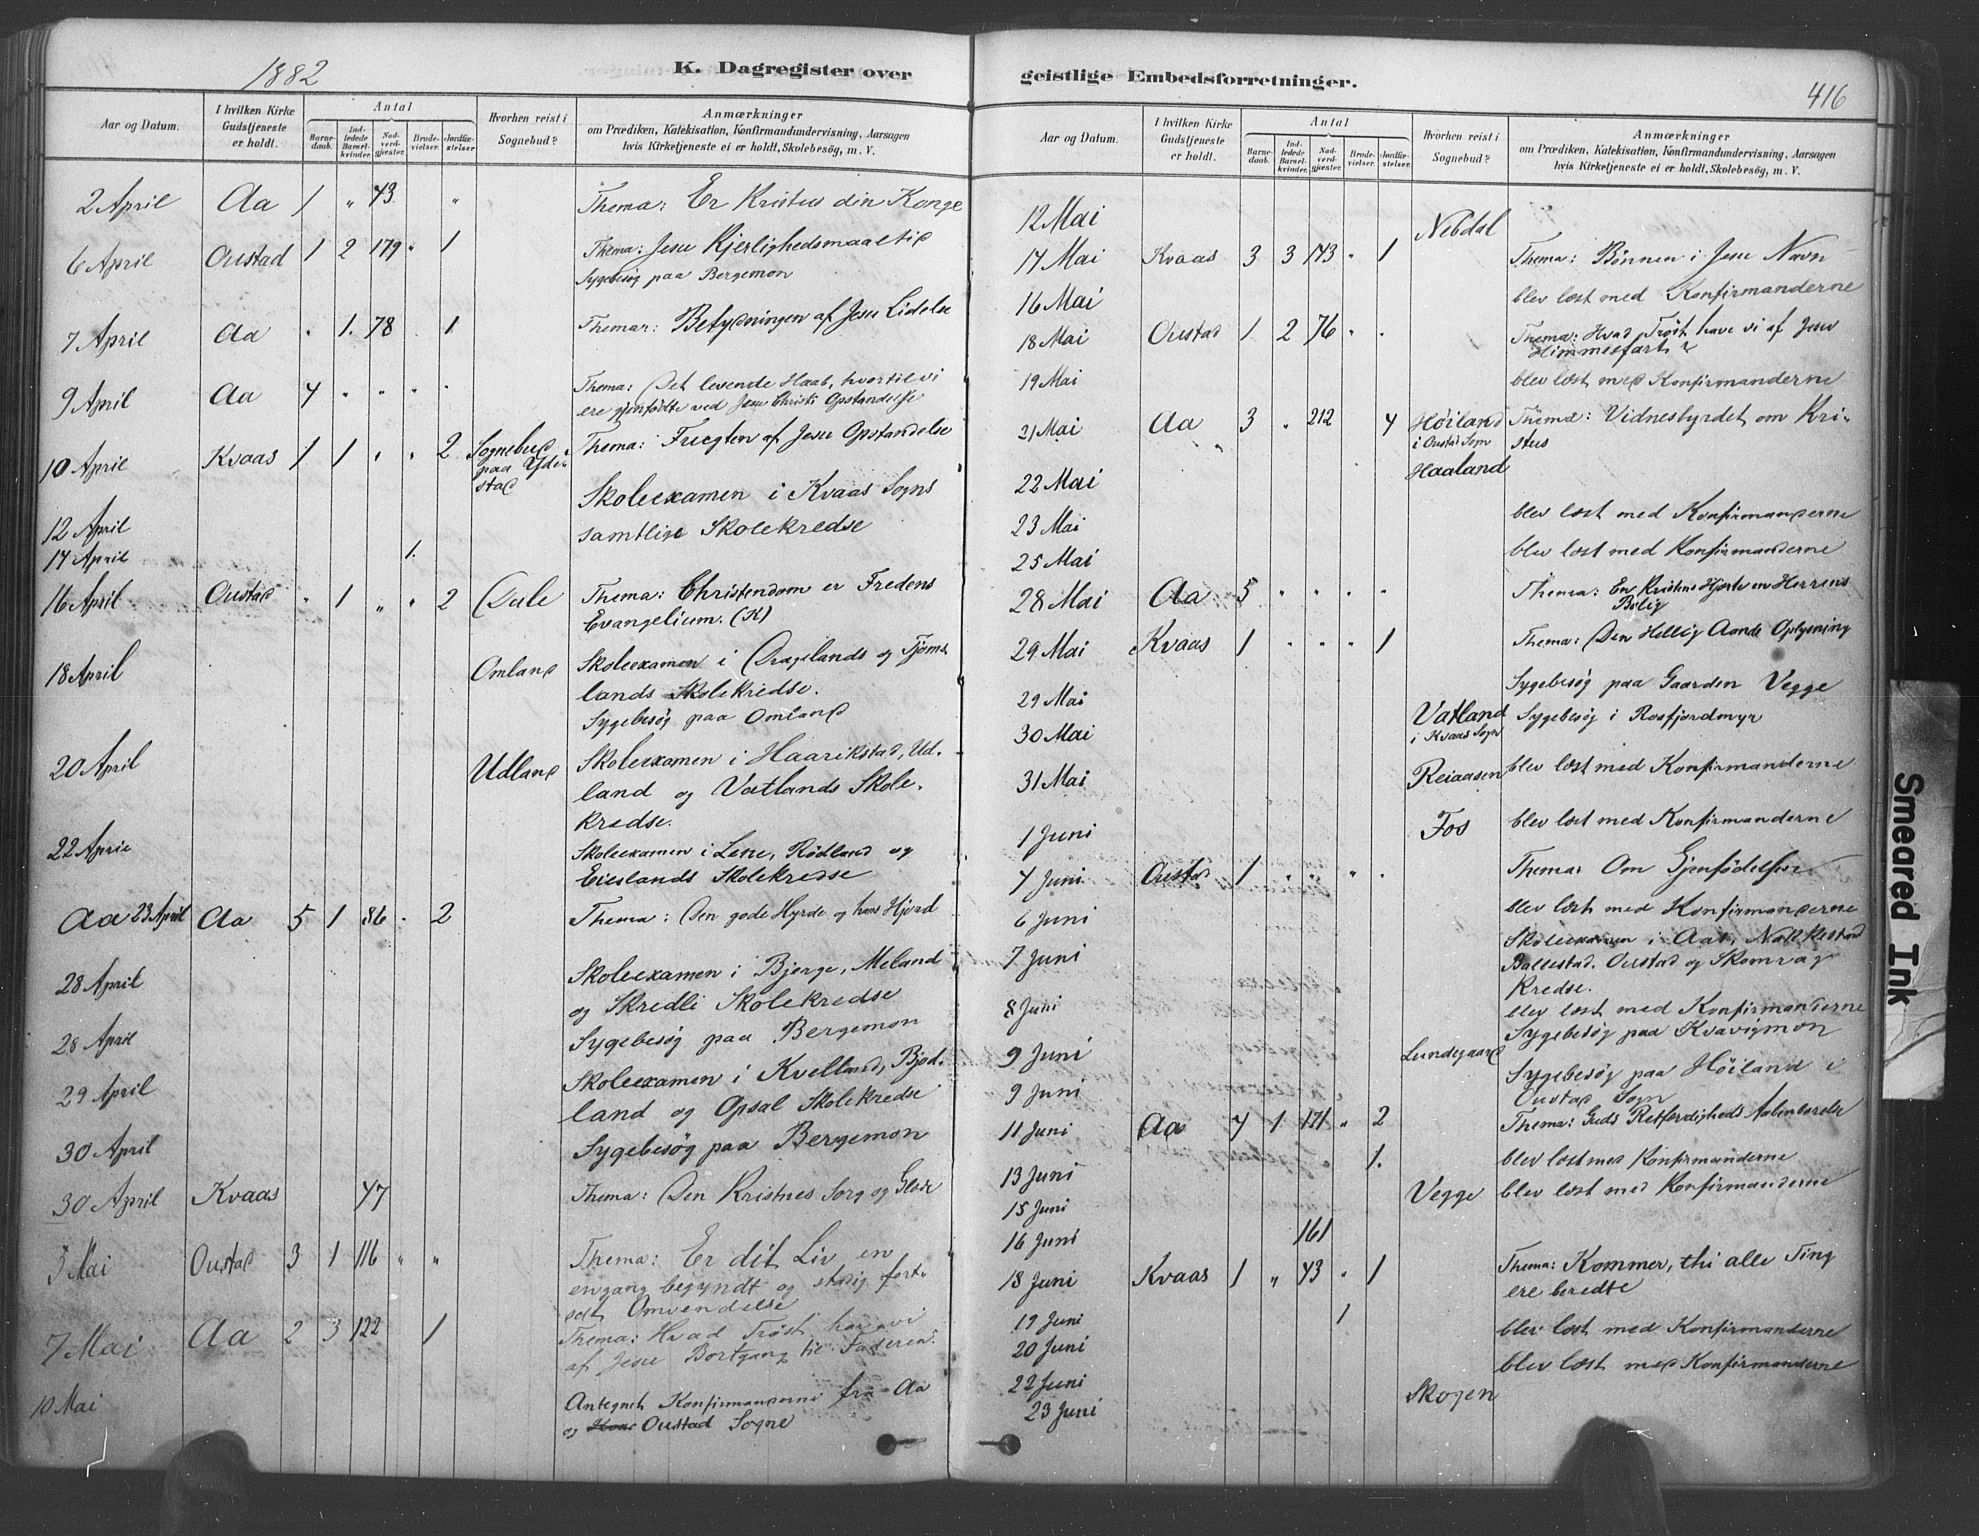 1882
K. Dagregister over
Aar og Datum.
I hvilken Kirke Gudstjeneste er holdt.
Antal
Barnedaab.
Indledede Barselkvinder.
Nadverdgjester.
Brudevielser.
Jordfæstelser.
Hvorhen reist i Sognebud?
Anmærkninger
om Prædiken, Katekisation, Konfirmandundervisning, Aarsagen
hvis Kirketjeneste ei er holdt, Skolebesög, m. V.
2 April Aa 1 " 43 " Thema: Er Kristus din Konge
6 April Oustad 1 2 179 " 1 Thema: Jesu Kjerlighedsmaaltid
Sygebesög paa Bergemon
7 April Aa " 1. 78 1 Themar: Betydningen af Jesu Lidelse
9 April Aa 4 " " " " Thema: Det levende Haab, hvortil vi
ere gjenfödte ved Jesu Christi Opstandelse
10 April Kvaas 1 1 " " 2 Sognebud Thema: Frugten af Jesu Opstandelse
paa Yde-
stad
12 April Skoleexamen i Kvaas Sogns
samtlige Skolekredse
14 April 1.
16 April Oustad " 1 " " 2 Dale Thema: Christendom er Fredens
Evangelium. (K)
18 April Omland Skoleexamen i Dragelands og Tjöms-
lands Skolekredse.
Sygebesög paa Omland
20 April Udland Skoleexamen i Haarikstad, Ud-
land og Vatlands Skole-
kredse.
22 April Skoleexamen i Lene, Rödland og
Eieslands Skolekredse
Aa 23 April Aa 5 1 86 . 2 Thema: Den gode Hyrde og hans Hjord
28 April Skoleexamen i Bjerge, Meland
og Skredli Skolekredse
28 April Sygebesög paa Bergemon
29 April Skoleexamen i Kvelland, Bjod-
land og Opsal Skolekredse
30 April Sygebesög paa Bergemon
30 April Kvaas 47 Thema: Den Kristnes Sorg og Glæde
5 Mai Oustad 3 1 116 " " Thema: Er dit Liv en
engang begyndt og stadig fort-
sat Omvendelse
7 Mai Aa 2 3 122 1 Thema: Hvad Tröst have vi
af Jesu Bortgang til Faderen.
10 Mai Antegnet Konfirmanderne fra Aa
og Oustad Sogne
geistlige Embedsforretninger.
416
Aar og Datum.
I hvilken Kirke Gudstjeneste er holdt.
Antal
Barnedaab.
Indledede Barselkvinder.
Nadverdgjester.
Brudevielser.
Jordfæstelser.
Hvorhen reist i Sognebud?
Anmærkninger
om Prædiken, Katekisation, Konfirmandundervisning, Aarsagen
hvis Kirketjeneste ei er holdt, Skolebesög, m. V.
12 Mai Nebdal
14 Mai Kvaas 3 3 143 " 1 Thema: Bönnen i Jesu Navn
16 Mai blev læst med Konfirmanderne
18 Mai Oustad 1 2 76 " . Thema: Hvad Tröst have vi af Jesu
Himmelfart?
19 Mai blev læst med Konfirmanderne
21 Mai Aa 3 " 212 4 Höiland Thema: Vidnesbyrdet om Kri-
i Oustad Sogn stus
22 Mai Haaland
23 Mai blev læst med Konfirmanderne
25 Mai blev læst med Konfirmanderne
28 Mai Aa 5 " " " " Thema: En Kristens Hjerte en Herrens
Bolig
29 Mai Kvaas 1 " " " 1 Thema: Den Hellig Aands Oplysning
29 Mai Sygebesög paa Gaarden Vegge
30 Mai Vatland Sygebesög i Rosfjordmyr
i Kvaas Sogn
31 Mai Reiaasen blev læst med Konfirmanderne
1 Juni Fos blev læst med Konfirmanderne
4 Juni Oustad 1 " " " . Thema: Om Gjenfödelsen
6 Juni blev læst med Konfirmanderne
7 Juni Skoleexamen i Aas, Nakkestad
Ballestad, Oustad og Skomrag
Kredse.
8 Juni blev læst med Konfirmanderne
9 Juni Lundegaard Sygebesög paa Kvavigmon
9 Juni Sygebesög paa Höiland i
Oustad Sogn
11 Juni Aa 4 1 171 " 2 Thema: Guds Retfærdigheds Aabenbarelse
13 Juni 1. blev læst med Konfirmanderne
15 Juni Vegge blev læst med Konfirmanderne
16 Juni 161
18 Juni Kvaas 1 " 43 " 1 Thema: Kommer, thi alle Ting
ere beredte
19 Juni 1
20 Juni blev læst med Konfirmanderne
22 Juni blev læst med Konfirmanderne
23 Juni Skogen
Smeared Ink